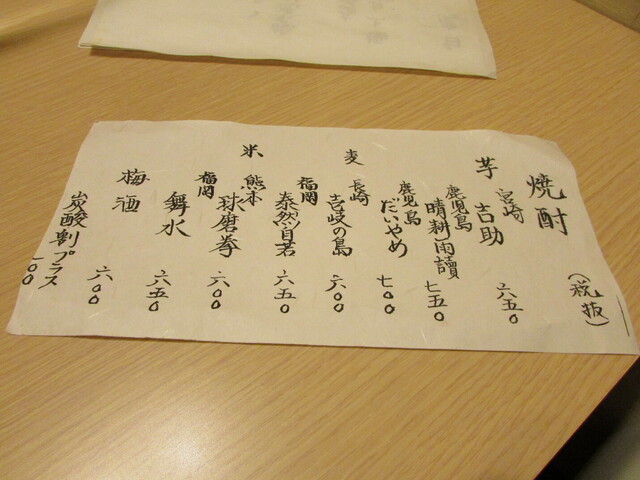 焼酎
(税抜)
芋 宮崎 吉助 六五〇
鹿児島 晴耕雨讀 七五〇
鹿児島 だいやめ 七〇〇
麦 長崎 壱岐の島 六〇〇
福岡 泰然自若 六五〇
米 熊本 球磨拳 六〇〇
福岡 舞水 六五〇
梅酒 六〇〇
炭酸割プラス 一〇〇